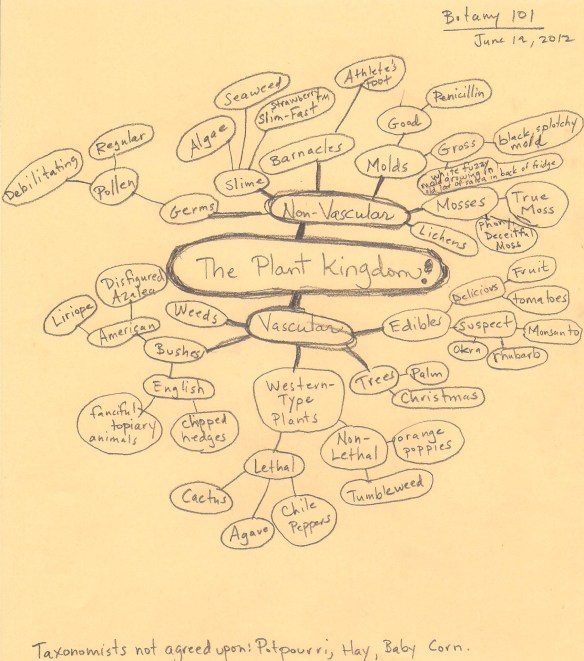 Botany 101
June 19, 2012
Athlete's
Foot
Seaweed
Strawberry
Slim-Fast™
Penicillin
Algae
Good
Regular
Barnacles
Gross
black splotchy
mold
Debilitating
Pollen
Slime
Molds
white fuzzy
mold growing in
old jar of salsa in back of fridge
Germs
Non-Vascular
Mosses
True
Moss
Phony
Deceitful
Moss
Lichens
The Plant Kingdom
Disfigured
Azalea
Weeds
Delicious
Fruit
tomatoes
Liriope
American
Vascular
Edibles
Suspect
Monsanto
Okra
rhubarb
Bushes
English
Western-
Type
Plants
Trees
Palm
Christmas
fanciful
topiary
animals
clipped
hedges
Non-
Lethal
orange
poppies
Lethal
Tumbleweed
Cactus
Agave
Chile
Peppers
Taxonomists not agreed upon: Potpourri, Hay, Baby Corn.